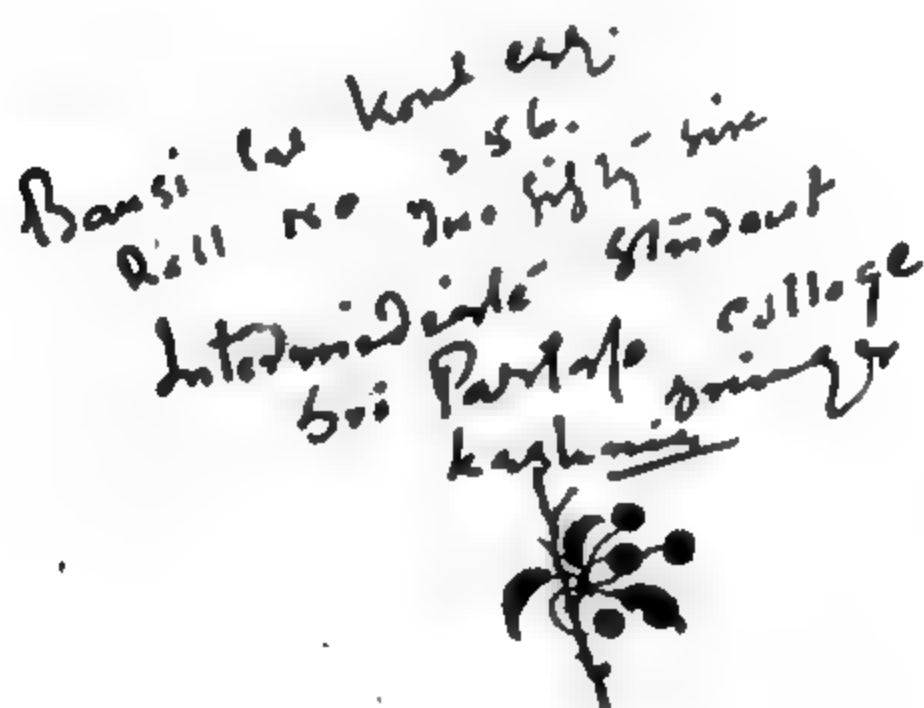 Bansi Lal Koul esq.
Roll no 256.
Two fifty six
Intermediate Student
Sri Partap College
Srinagar
Kashmir